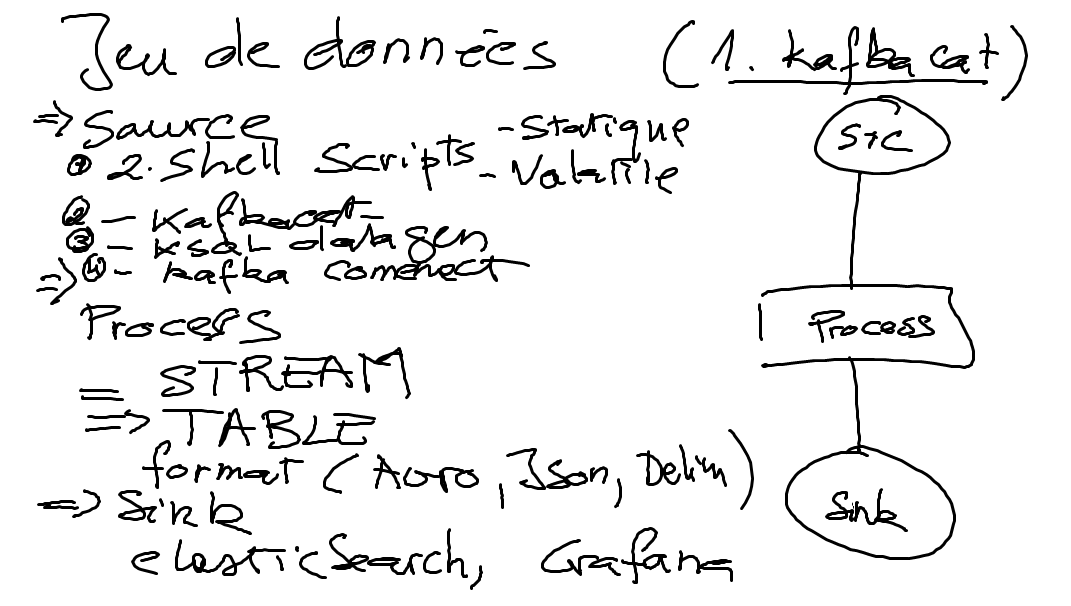 Jeu de données (1. kafkacat)
=> Source - Statique
① 2. Shell Scripts - Volatile
② - Kafkacat -
③ - KSQL datagen
=> ④ - kafka connect
Process
= STREAM
=> TABLE
format (Avro, Json, Delim)
=> Sink
elasticSearch, Grafana
SrC
Process
Sink